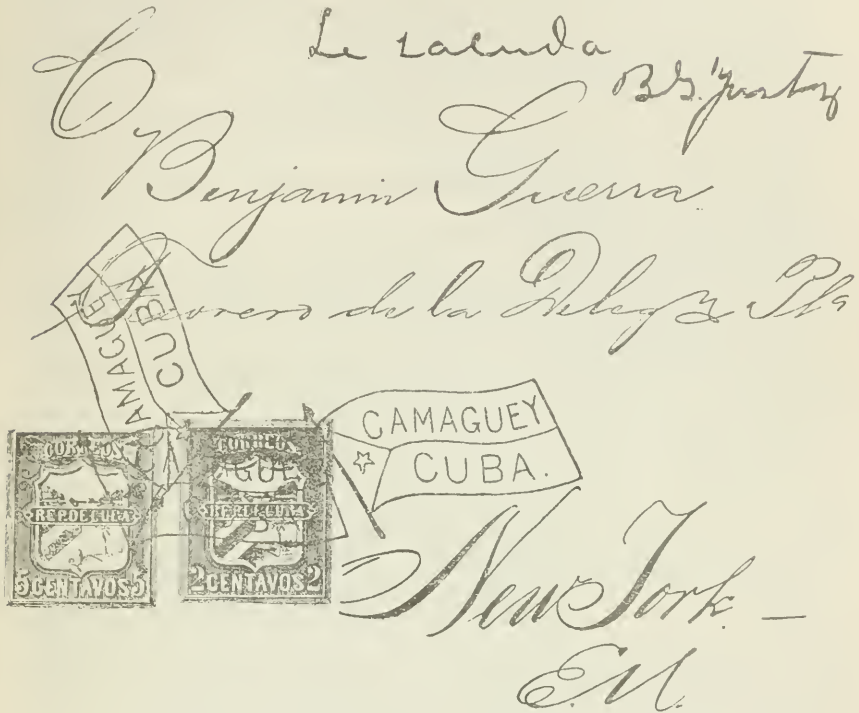 Le saluda
C
Benjamin Guerra
Tesorero de la Deleg Pla
CAMAGUEY
CUBA
CAMAGUEY
CUBA.
CORREOS
REP.DE CUBA
5 CENTAVOS 5
CORREOS
GUE
REP.DE CUBA
2 CENTAVOS 2
New York. —
E.U.